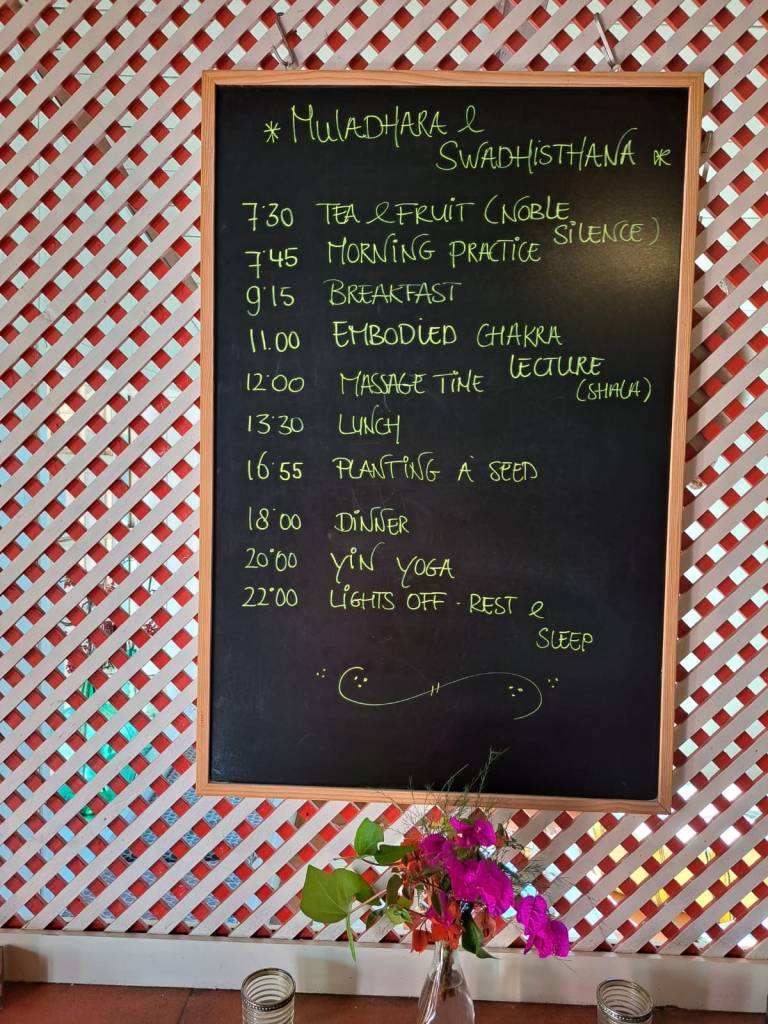 * MULADHARA &
SWADHISTHANA *
7:30 TEA & FRUIT (NOBLE
SILENCE)
7:45 MORNING PRACTICE
9:15 BREAKFAST
11.00 EMBODIED CHAKRA
LECTURE
(SHALA)
12:00 MASSAGE TIME
13:30 LUNCH
16:55 PLANTING A SEED
18:00 DINNER
20:00 YIN YOGA
22:00 LIGHTS OFF - REST &
SLEEP